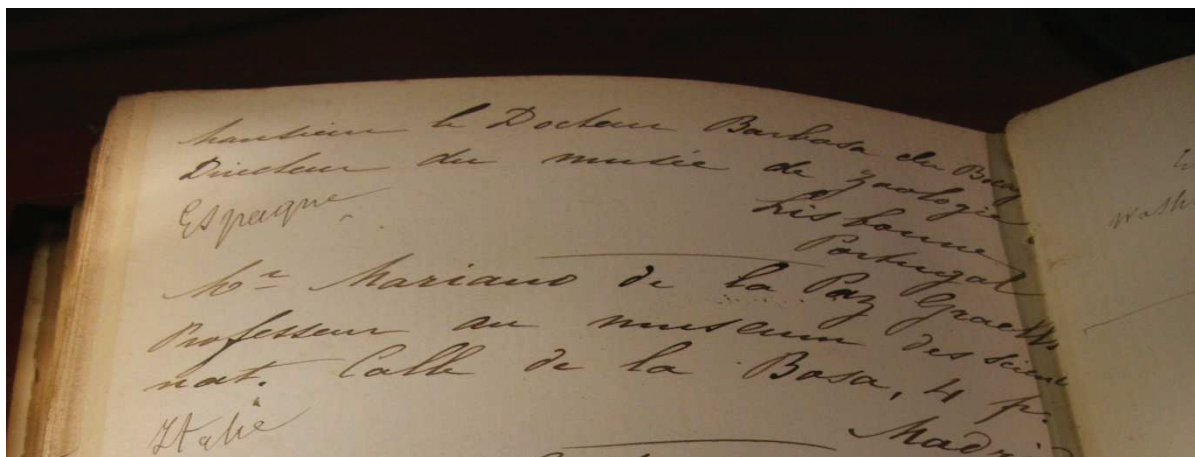 Monsieur le Docteur Barbosa du Bocag
Directeur du musée de zoologie.
Lisbonne
Portugal
Espagne
Mr Mariano de la Paz Graells
Professeur au museum des scien
nat. Calle de la Bosa, 4 pr.
Madri
Italie
Wash